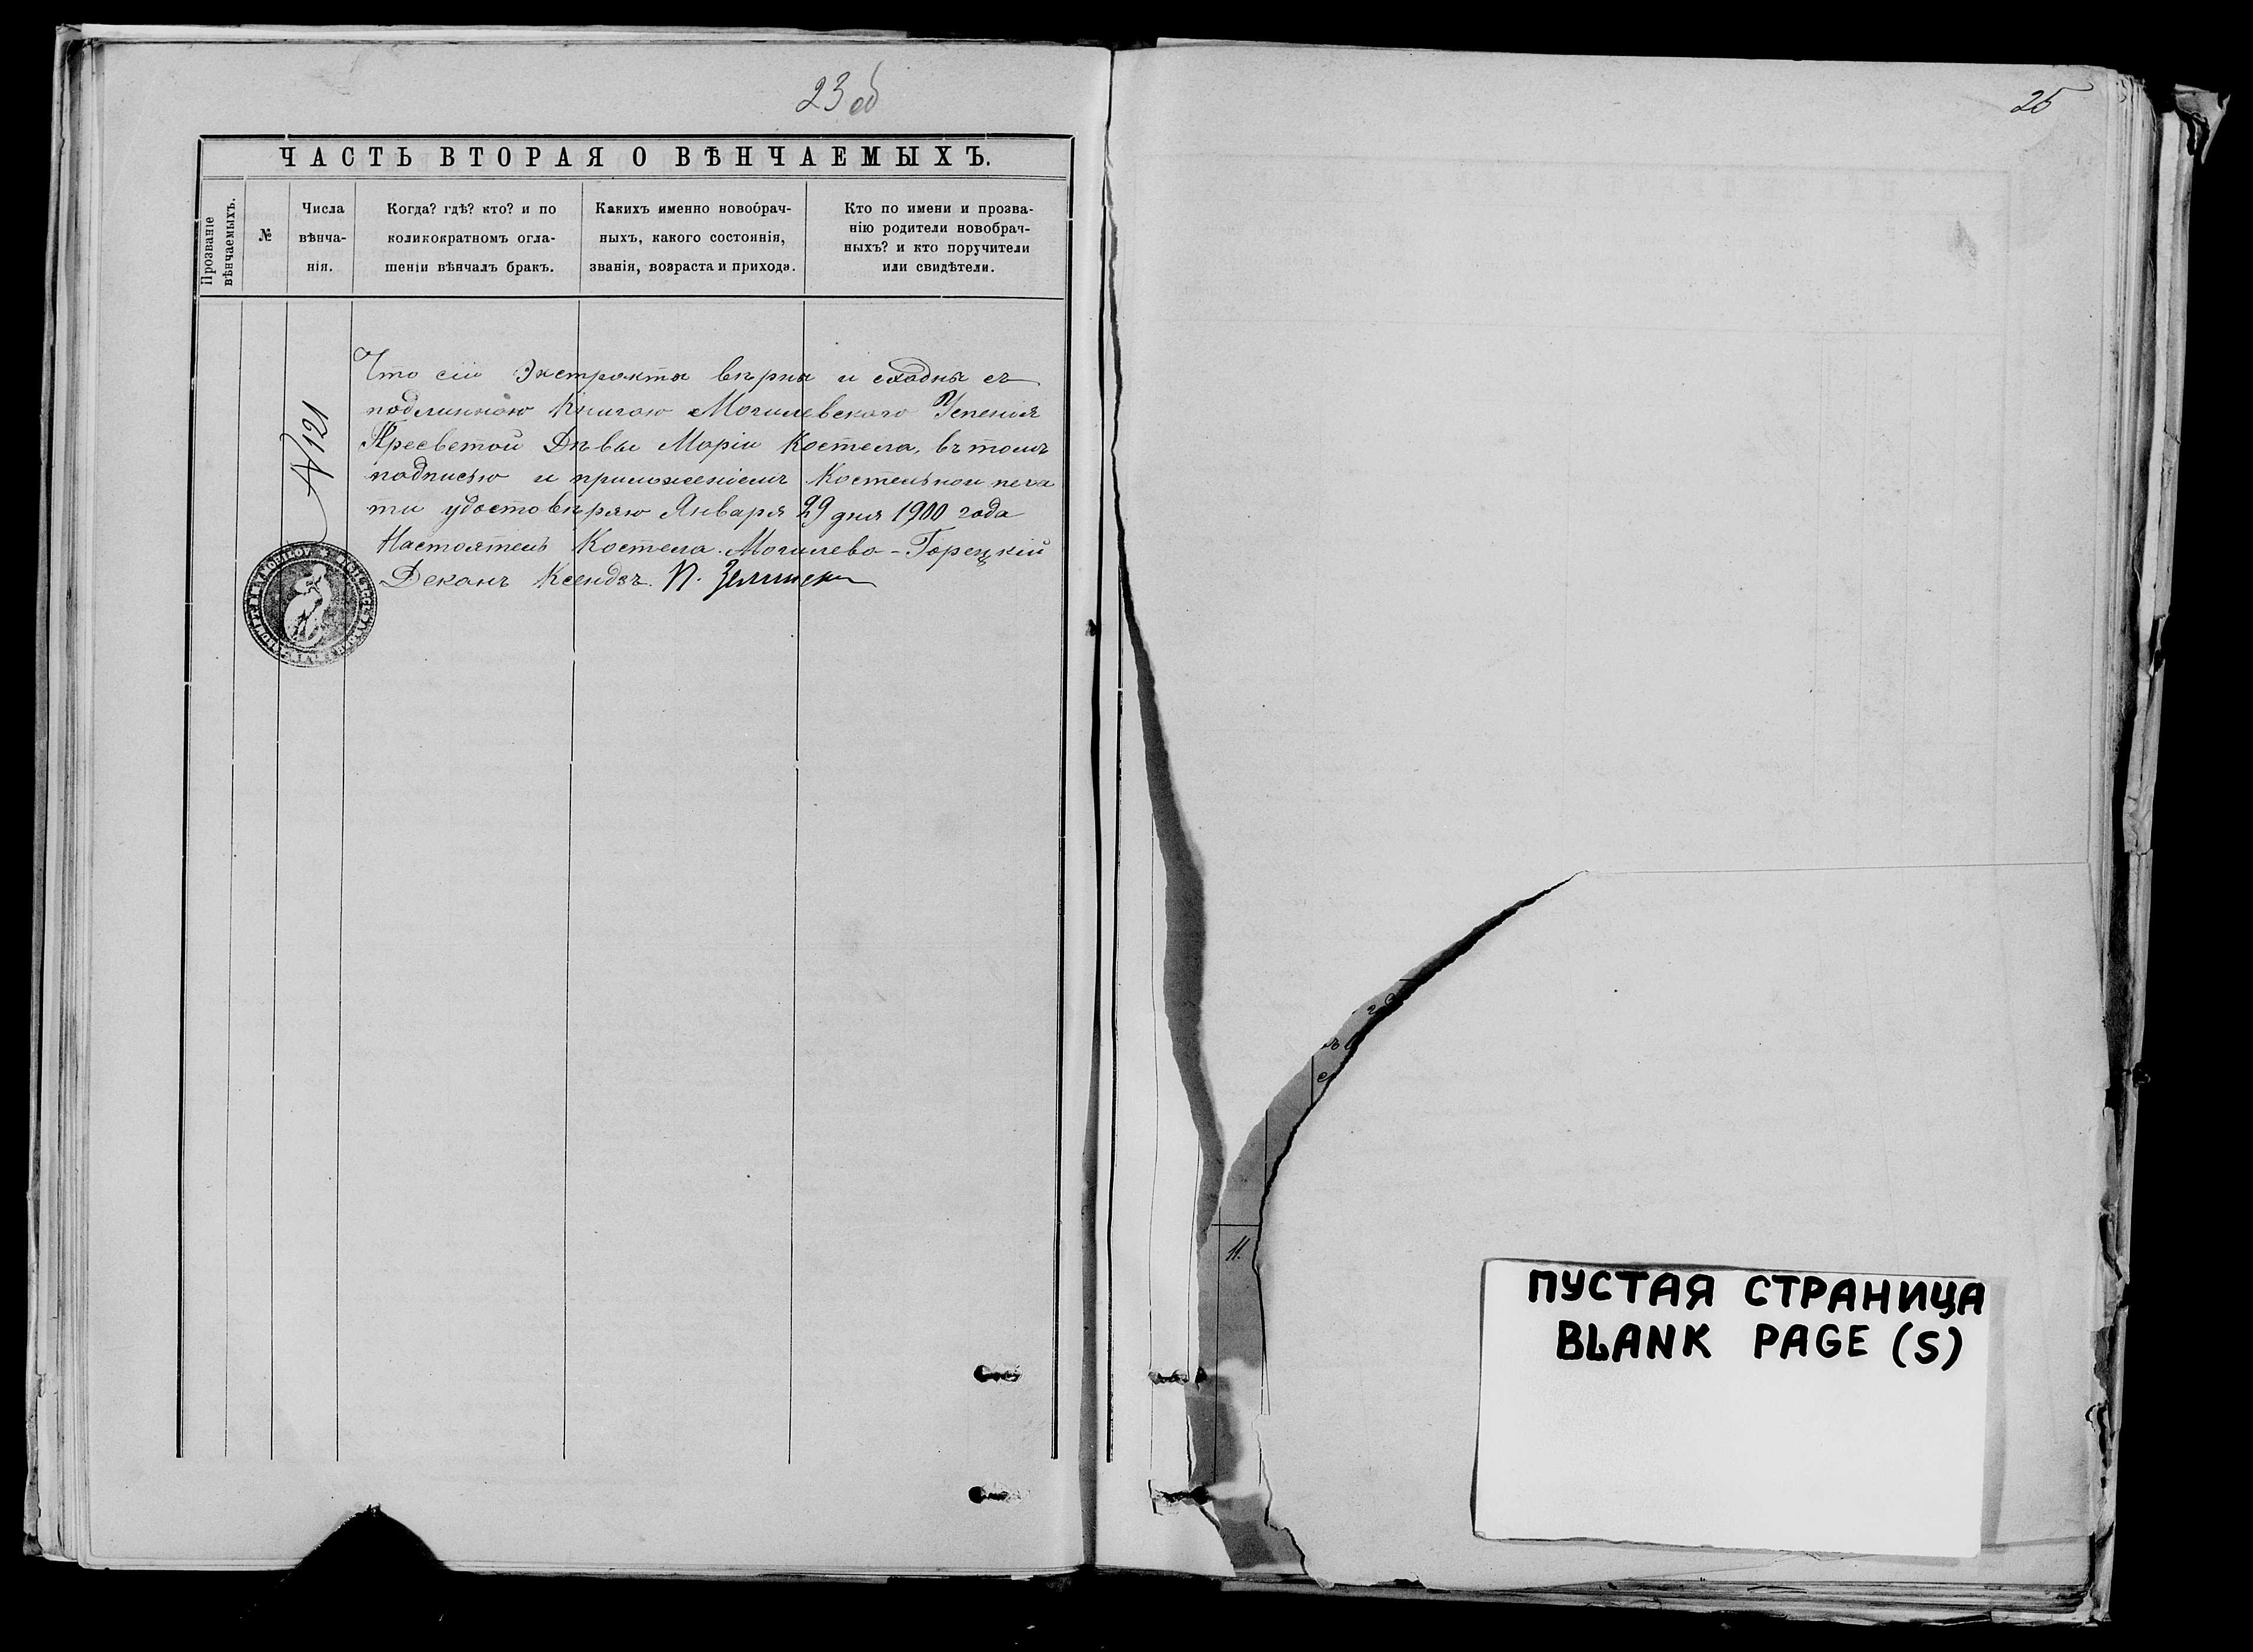 23 об
ЧАСТЬ ВТОРАЯ О ВѢНЧАЕМЫХЪ.
Прозваніе
вѣнчаемыхъ.
№
Числа
вѣнча-
нія.
Когда? гдѣ? кто? и по
коликократномъ огла-
шеніи вѣнчалъ бракъ.
Какихъ именно новобрач-
ныхъ, какого состоянія,
званія, возраста и прихода.
Кто по имени и прозва-
нію родители новобрач-
ныхъ? и кто поручители
или свидѣтели.
№ 121
Что сіи Экстракты вѣрны и сходны съ
подлинною Книгою Могилевскаго Успенія
Пресветой Дѣвы Маріи Костела, въ томъ
подписью и приложеніемъ Костельной печа
ти удостовѣряю Января 29 дня 1900 года
Настоятель Костела Могилево-Горецкій
Деканъ Ксендзъ П. Зелински
25
11.
ПУСТАЯ СТРАНИЦА
BLANK PAGE (S)